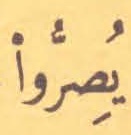 يُصِرُّوا۟